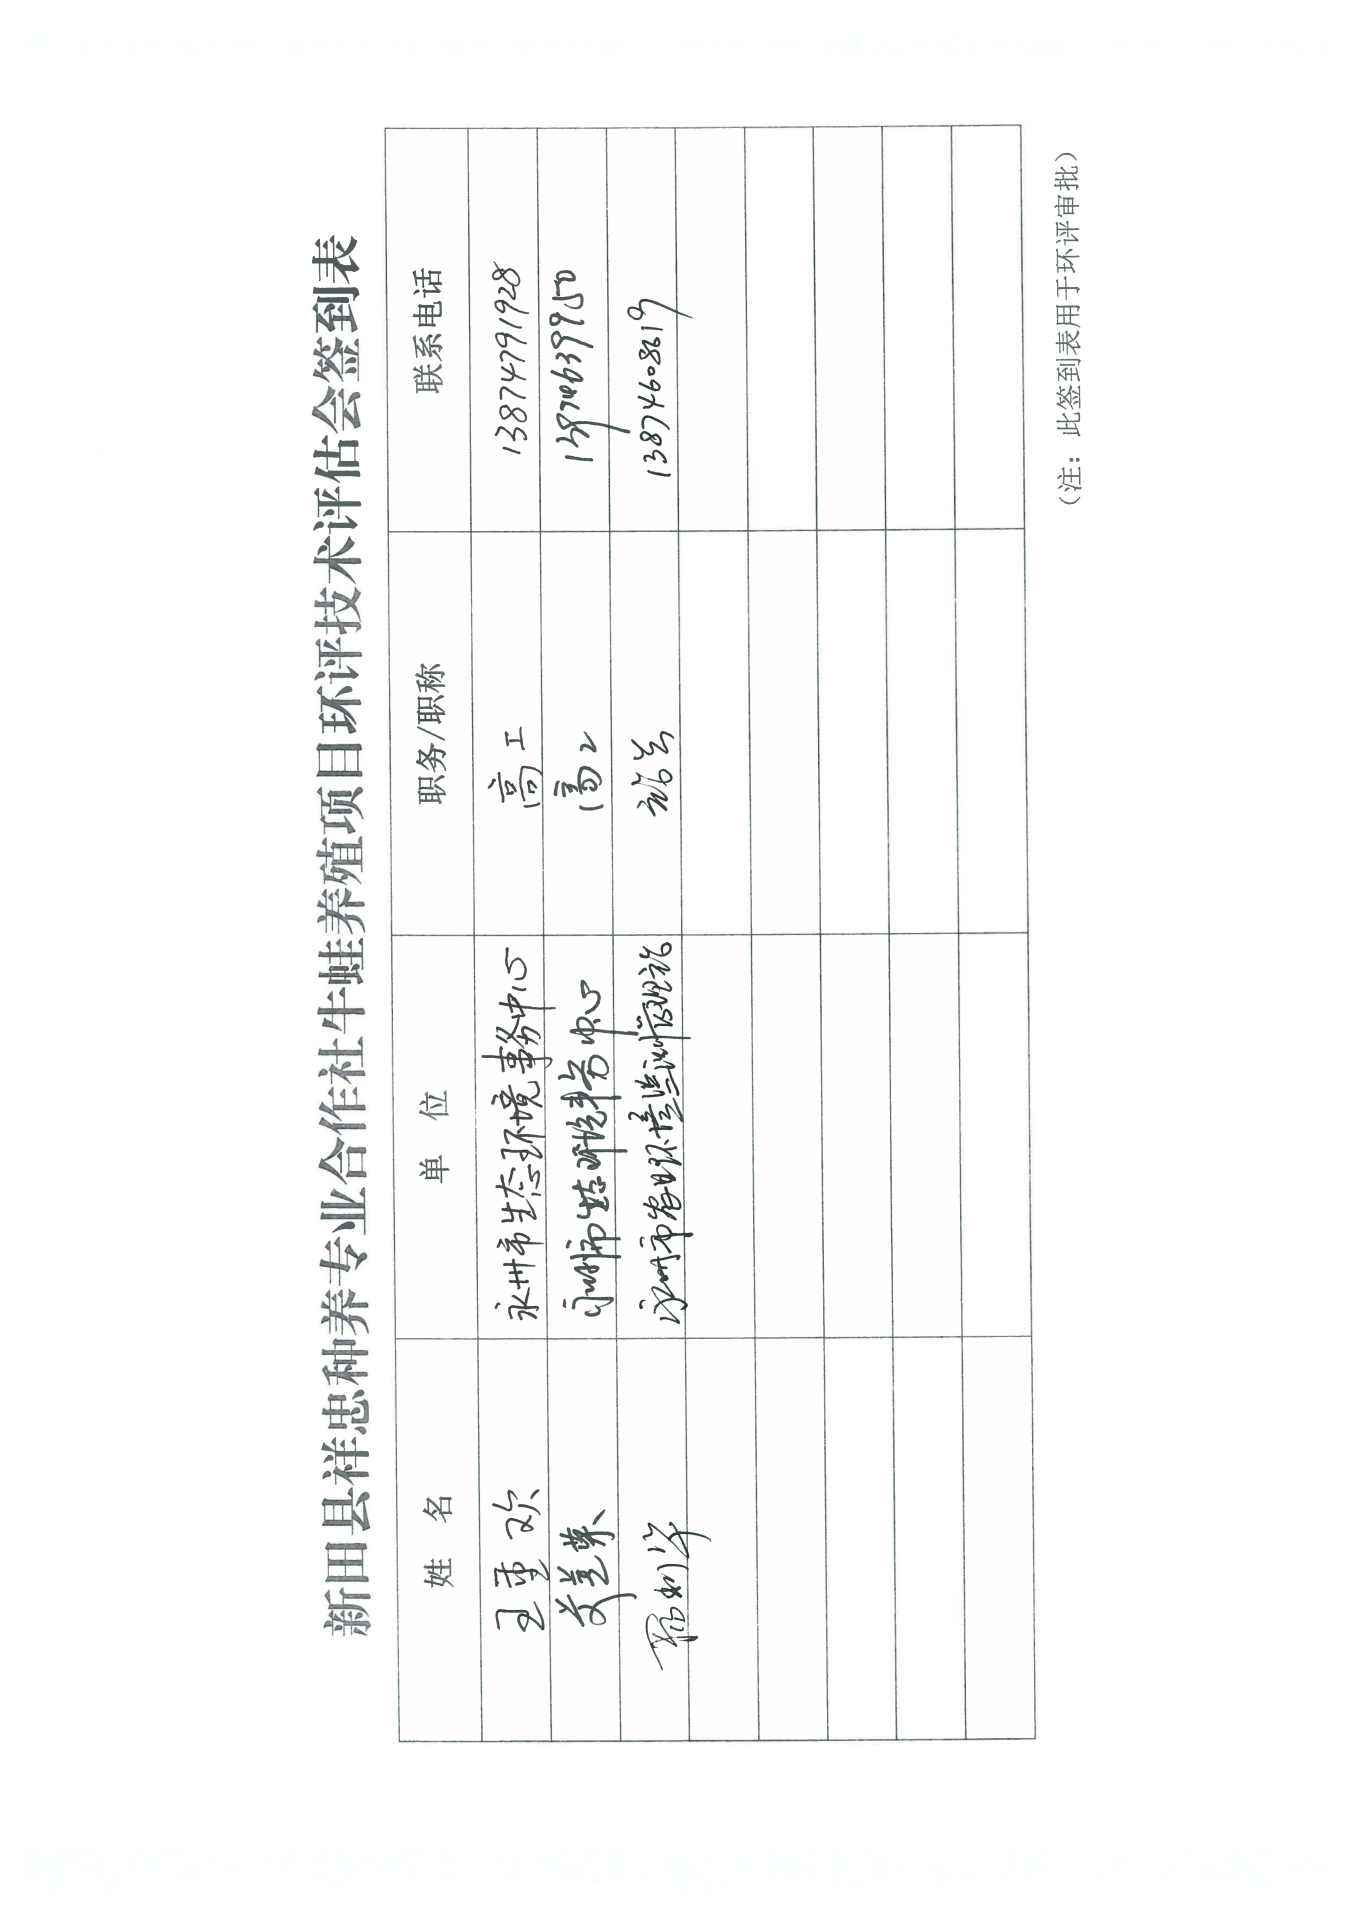 新田县祥忠种养专业合作社牛蛙养殖项目环评技术评估会签到表
姓 名 单 位 职务/职称 联系电话
王重欢 永州市生态环境事务中心 高工 13874791928
永州市生态环境事务中心 高工
永州市 环境监测管理站 站长 13874608619
（注：此签到表用于环评审批）